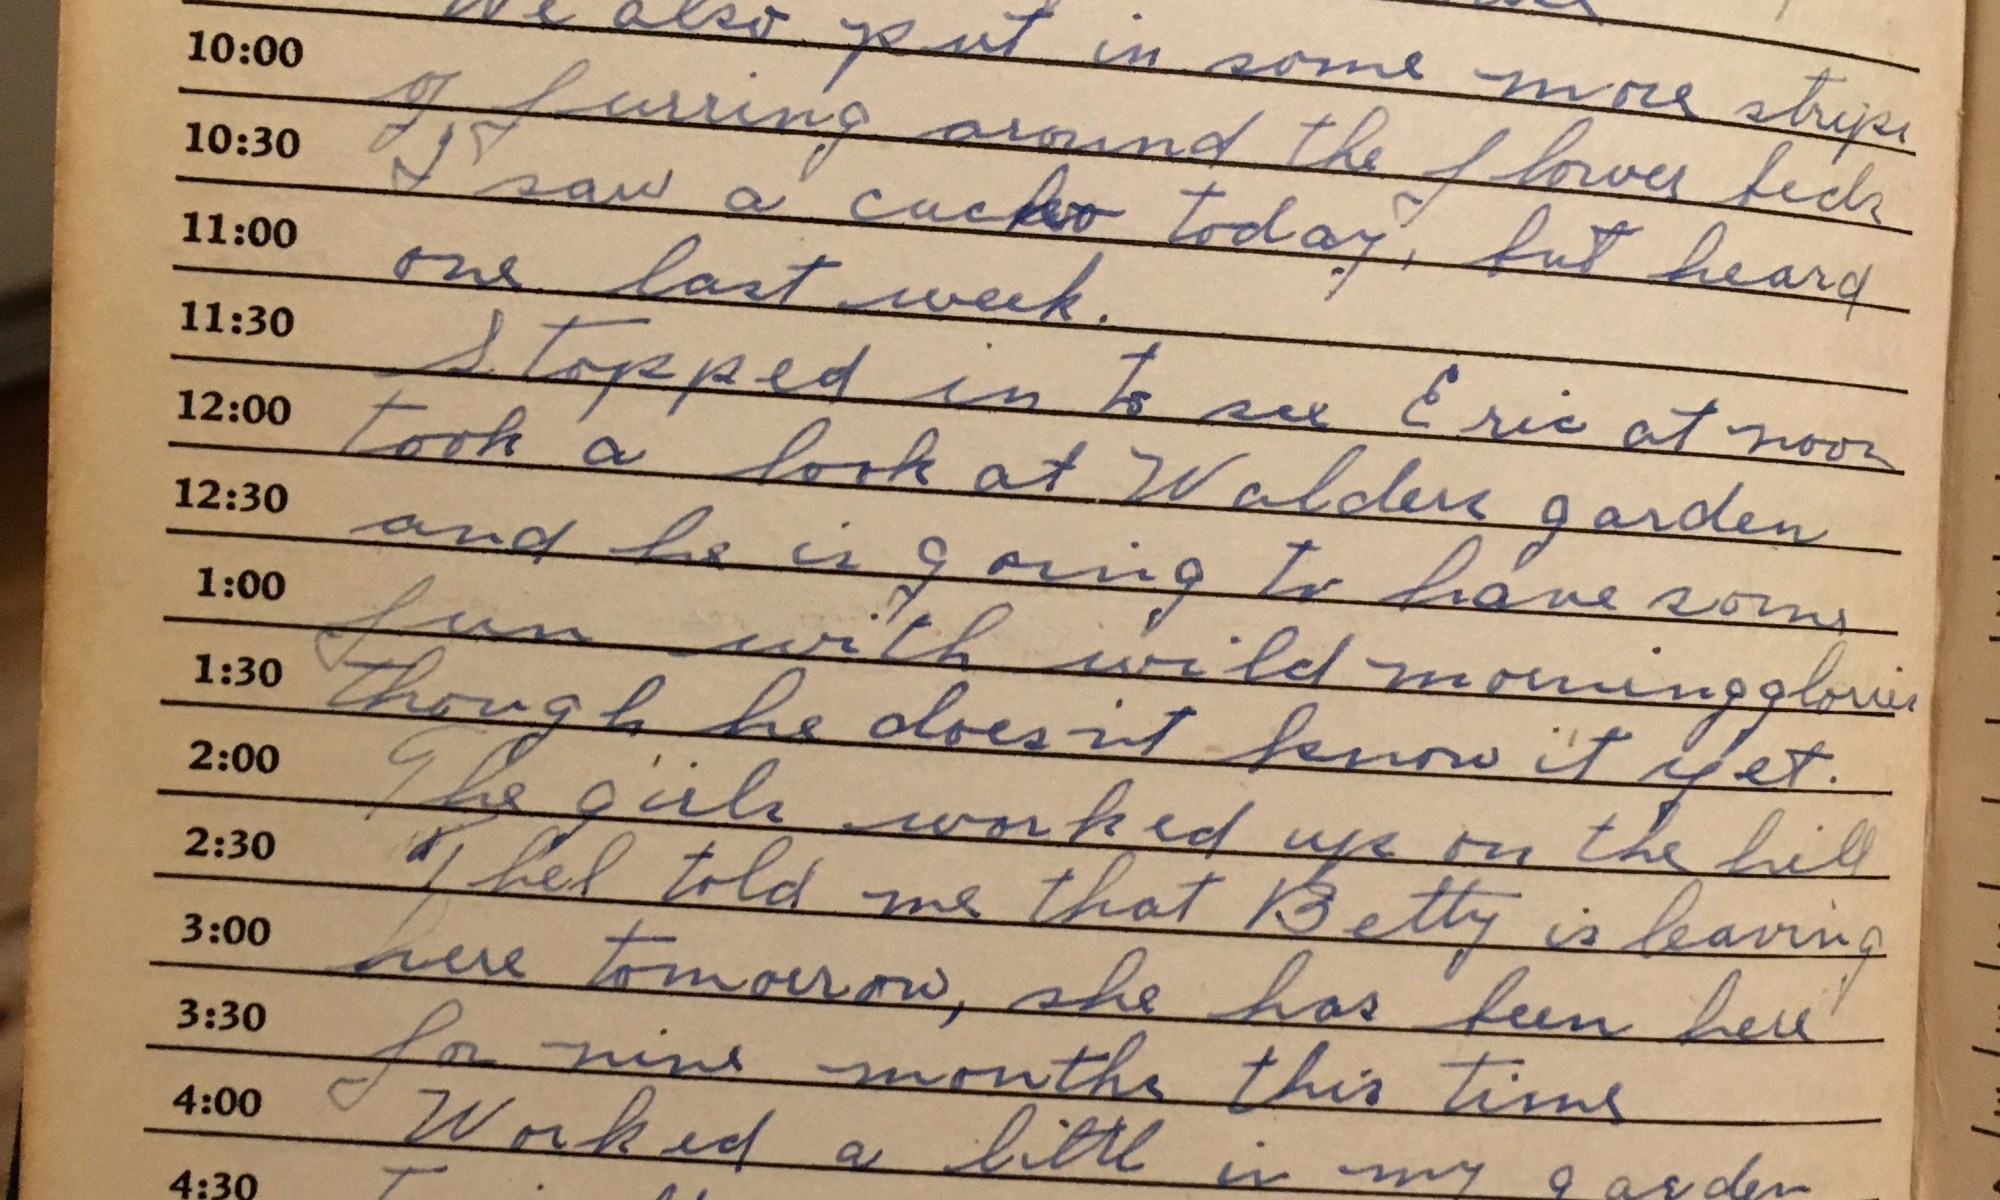 We also put in some more strips
10:00
of furring around the flower beds
10:30
I saw a cuckoo today, but heard
11:00
one last week.
11:30
Stopped in to see Eric at noon
12:00
took a look at Walders garden
12:30
and he is going to have some
1:00
fun with wild morningglories
1:30
though he doesn't know it yet.
2:00
The girls worked up on the hill
2:30
Thel told me that Betty is leaving
3:00
here tomorrow, she has been here
3:30
for nine months this time
4:00
Worked a little in my garden
4:30